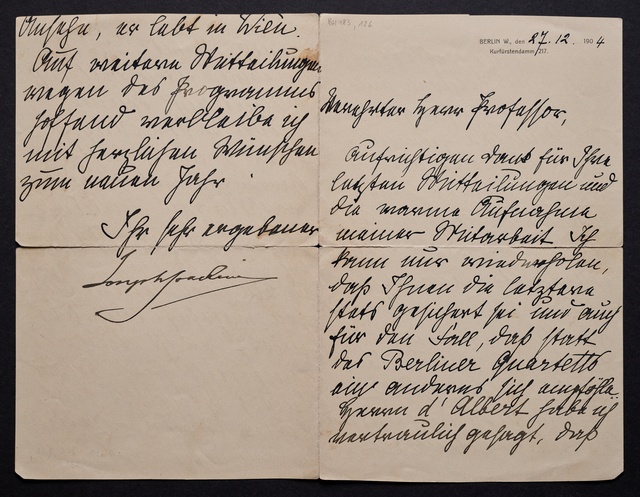 BERLIN W., den 27. 12. 1904
Kurfürstendamm 217.
Verehrter Herr Professor,
Aufrichtigen Dank für Ihre
letzten Mitteilungen und
die warme Aufnahme
meiner Mitarbeit. Ich
kann nur wiederholen,
daß Ihnen die letztere
stets gesichert sei und auch
für den Fall, daß statt
des Berliner Quartetts
ein anderes sich empföhle.
Herrn d'Albert habe ich
vertraulich gesagt, daß
Ansehn, er lebt in Wien.
Auf weitere Mitteilungen
wegen des Programms
hoffend verbleibe ich
mit herzlichen Wünschen
zum neuen Jahr
Ihr sehr ergebener
Joseph Joachim